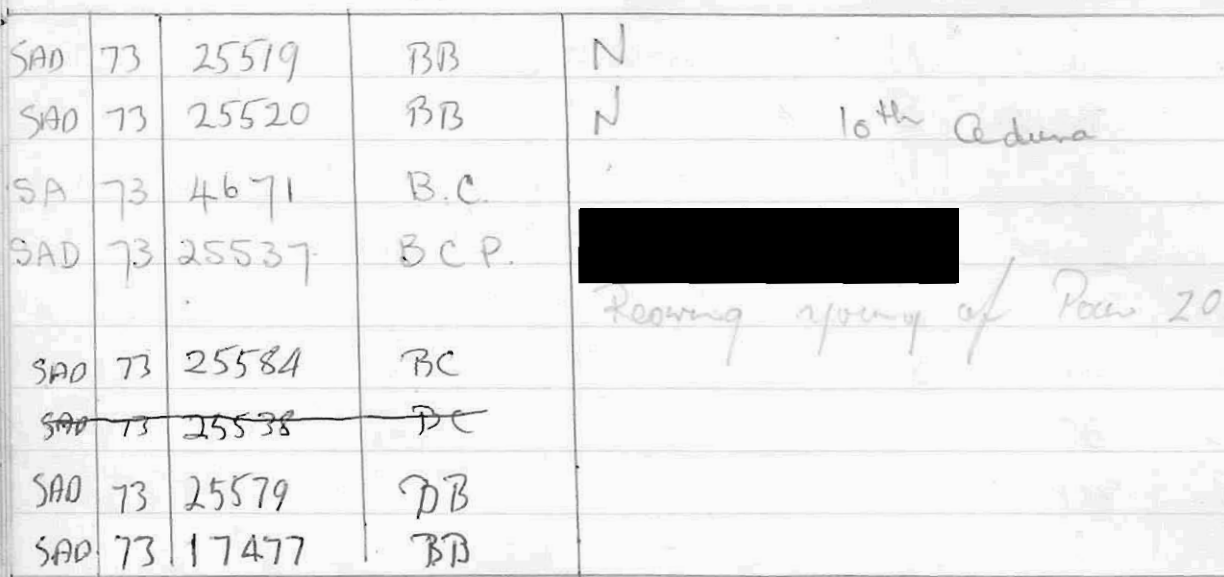 SAD 73 25519 BB N
SAD 73 25520 BB N 10th Ceduna
SA 73 4671 B.C.
SAD 73 25537 BCP.
Rearing young of Pair 20
SAD 73 25584 BC
SAD 73 25538 BC
SAD 73 25579 BB
SAD 73 17477 BB